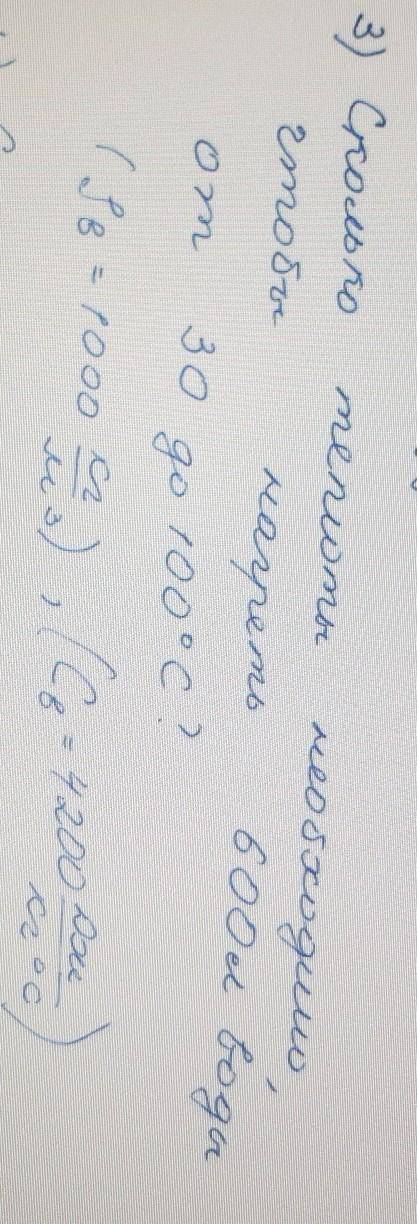 3) Сколько теплоты необходимо,
чтобы нагреть 600л воды
от 30 до 100°С,
(ρв = 1000 кг/м³), (Cв = 4200 Дж/кг°С)